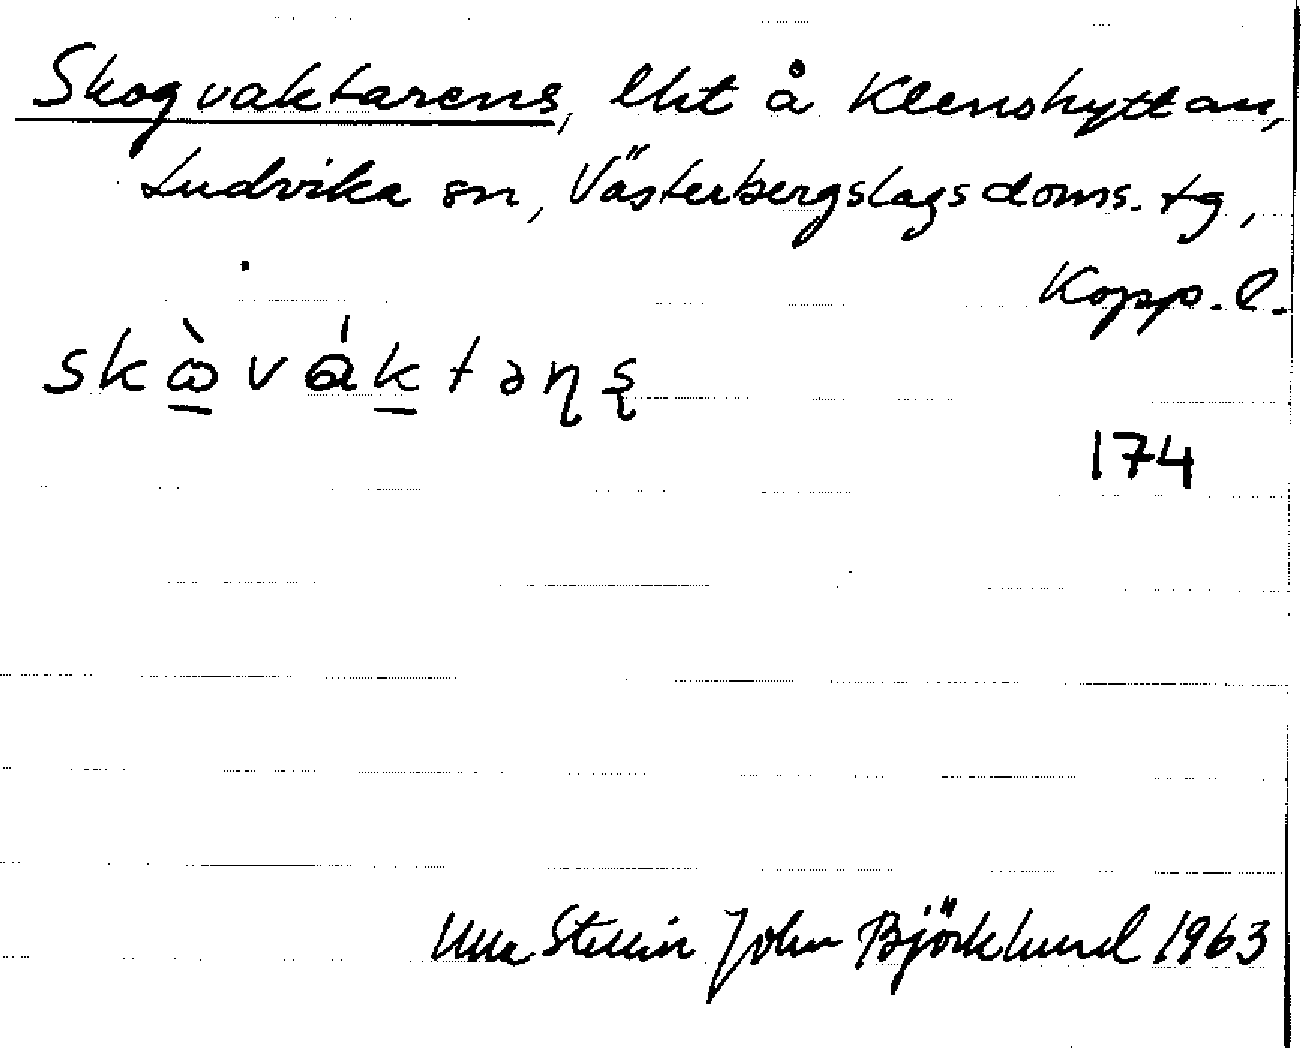 Skogvaktarens, lht å Klenshyttan,
Ludvika sn, Västerbergslags doms. tg,
Kopp. l.
skὼ̱vákṯəɳʂ
174
Ulla Stellin John Björklund 1963